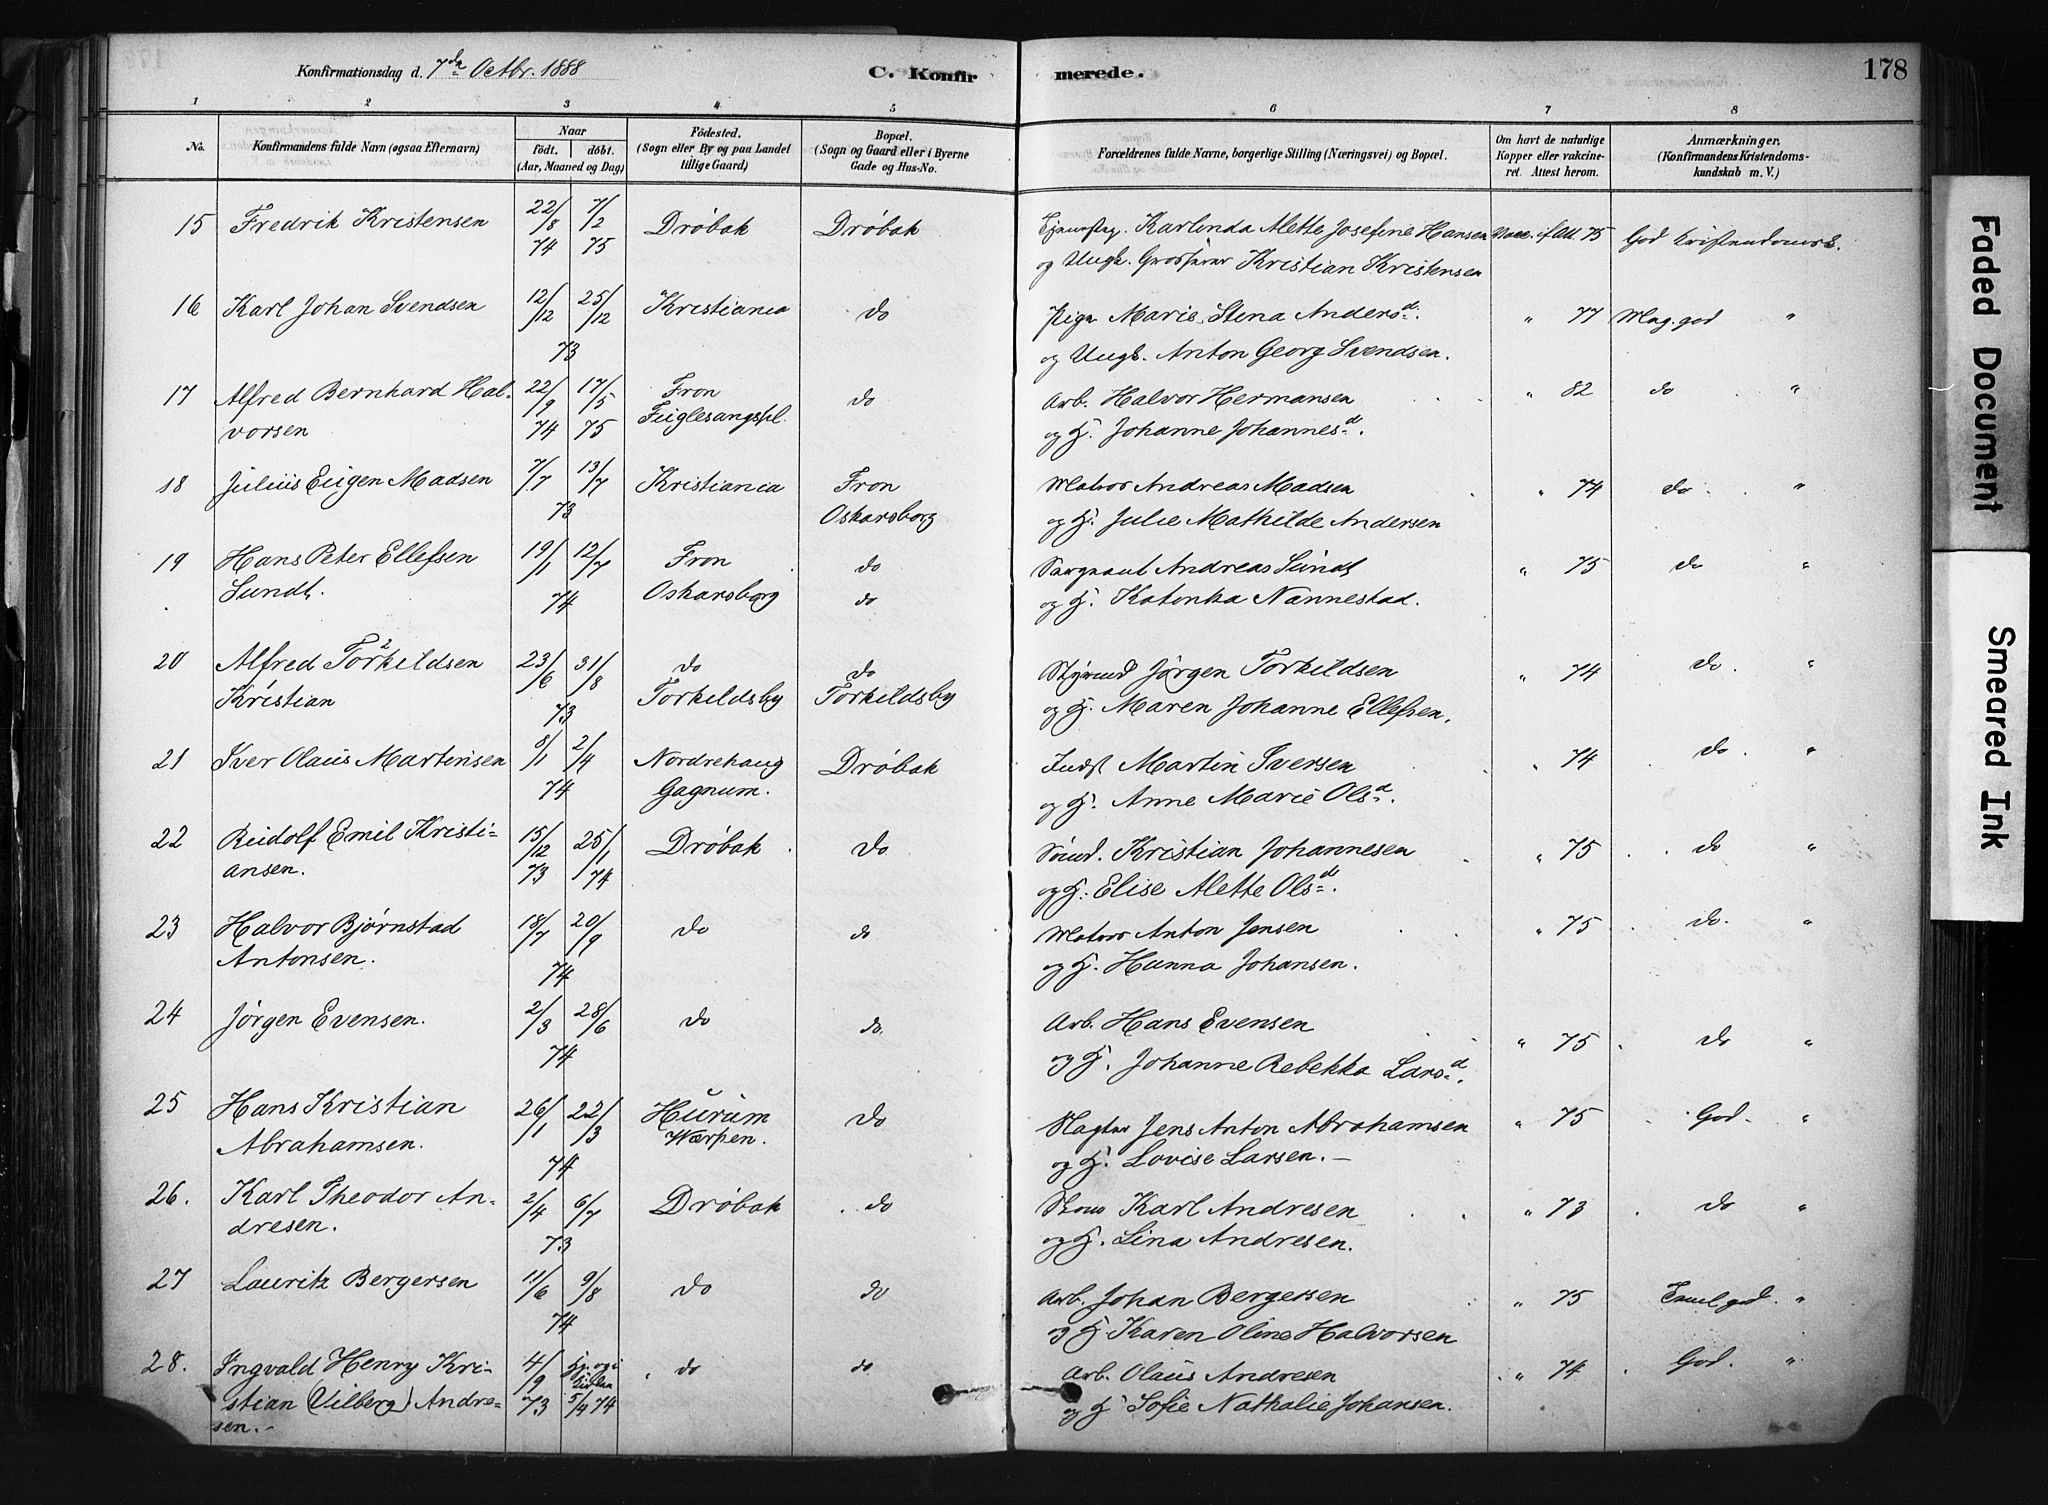 Konfirmationsdag d. 7de Octbr. 1888 C. Konfirmerede. 178
1 2 3 4 5 6 7 8
No. Konfirmandens fulde Navn (ogsaa Efternavn) Naar Født. døbt. (Aar, Maaned og Dag) Fødested. (Sogn eller By og paa Landet tillige Gaard) Bopæl. (Sogn og Gaard eller i Byerne Gade og Hus-No. Forældrenes fulde Navne, borgerlige Stilling (Næringsvei) og Bopæl. Om havt de naturlige Kopper eller vakcineret. Attest herom. Anmærkninger. (Konfirmandens Kristendomskundskab m. V.)
15 Fredrik Kristensen 22/8 74 7/2 75 Drøbak Drøbak Karlinda Alette Josefine Hansen Vacc. 75 God Kristendomsk.
og Ungk. Kristian Kristensen
16 Karl Johan Svendsen 12/12 25/12 73 Kristiania do Pige Marie Stina Andersd. " 77 Mag. god "
og Ungk. Anton Georg Svendsen.
17 Alfred Bernhard Hal- 22/9 74 17/5 75 Fron do Arb. Halvor Hermansen " 82 do "
vorsen Fuglesangspl. og H. Johanne Johannesd.
18 Julius Eugen Madsen 7/7 13/7 73 Kristiania Fron Matros Andreas Madsen " 74 do "
Oskarsborg og H. Julie Mathilde Andersen
19 Hans Peter Ellefsen 19/1 12/7 74 Fron do Sergeant Andreas Sundt " 75 do "
Sundt. Oskarsborg do og H. Katinka Nannestad.
20 Alfred Torkildsen 2 23/6 31/8 73 do do Styrmd Jørgen Torkildsen " 74 do "
Kristian Torkildsby Torkildsby og H. Maren Johanne Ellefsen.
21 Iver Olaus Martinsen 8/1 2/4 74 Nordrehaug Drøbak Indst Martin Iversen " 74 do "
Gagnum. og H. Anne Marie Olsd.
22 Rudolf Emil Kristi- 15/12 73 25/1 74 Drøbak do Sømd. Kristian Johannesen " 75 do "
ansen. og H. Elise Alette Olsd.
23 Halvor Bjørnstad 18/7 20/9 74 do do Matros Anton Jensen " 75 do "
Antonsen. og H. Hanna Johansen.
24 Jørgen Evensen. 2/3 28/6 74 do do Arb. Hans Evensen " 75 do "
og H. Johanne Rebekka Larsd.
25 Hans Kristian 26/1 22/3 74 Hurum do Jens Anton Abrahamsen " 75 God "
Abrahamsen. Wærpen. og H. Lovise Larsen.
26. Karl Theodor An- 2/4 6/7 73 Drøbak do Karl Andresen " 73 do "
dresen. og H. Lina Andresen.
27 Lauritz Bergersen 11/6 9/8 74 do do Arb. Johan Bergersen " 75 god "
og H Karen Oline Halvorsen
28. Ingvald Henry Kri- 4/9 73 5/4 74 do do Arb. Olaus Andresen " 74 God. "
stian (Vilberg) Andre- og H Sofie Nathalie Johansen.
sen.
Faded Document
Smeared Ink